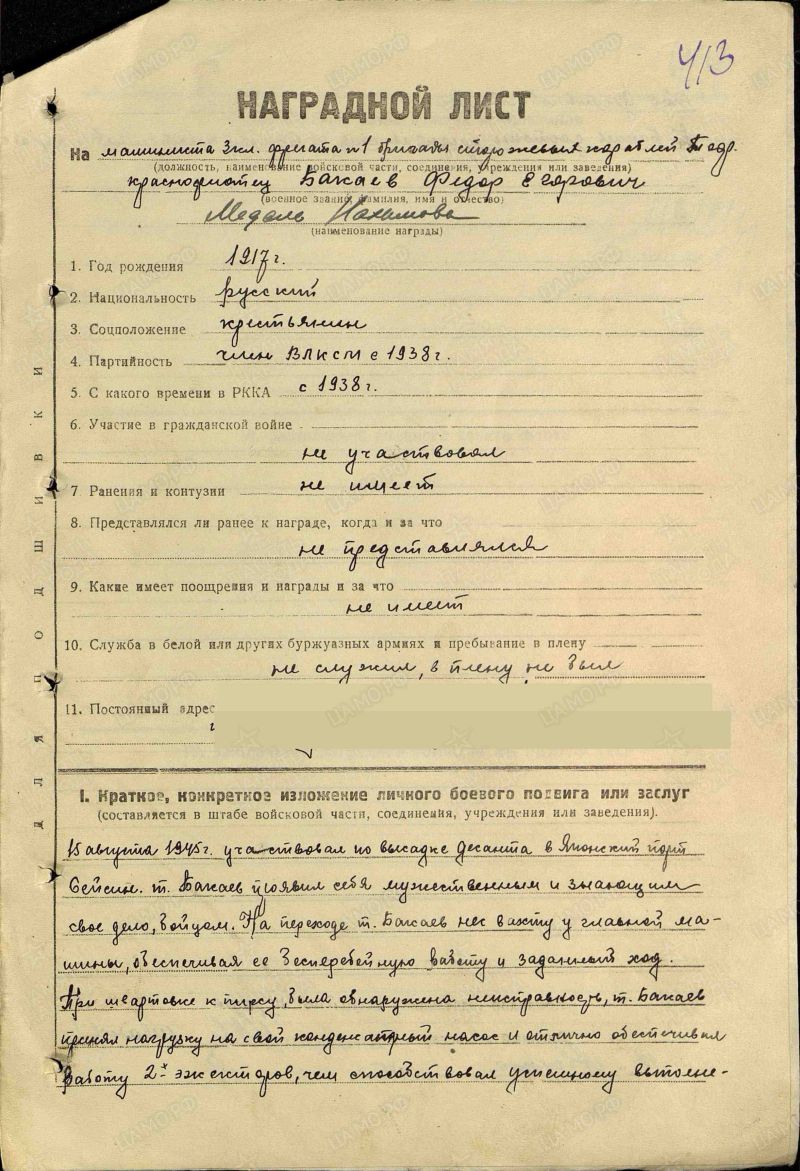 413
НАГРАДНОЙ ЛИСТ
На машиниста 3 кл. фрегата №1 бригады сторожевых кораблей
(должность, наименование войсковой части, соединения, учреждения или заведения)
краснофлотец Бакаев Федор Егорович
(военное звание, фамилия, имя и отчество)
Медаль Нахимова
(наименование награды)
1. Год рождения 1917 г.
2. Национальность русский
3. Соцположение крестьянин
4. Партийность член ВЛКСМ с 1938 г.
5. С какого времени в РККА с 1938 г.
6. Участие в гражданской войне
не участвовал
7 Ранения и контузии не имеет
8. Представлялся ли ранее к награде, когда и за что
не представлялся
9. Какие имеет поощрения и награды и за что
не имеет
10. Служба в белой или других буржуазных армиях и пребывание в плену
не служил, в плену не был
11. Постоянный адрес
для подшивки
I. Краткое, конкретное изложение личного боевого подвига или заслуг
(составляется в штабе войсковой части, соединения, учреждения или заведения).
15 августа 1945 г. участвовал по высадке десанта в Японский порт
Сейсин. т. Бакаев проявил себя мужественным и знающим
свое дело, бойцом. На переходе т. Бакаев нес вахту у главной ма-
шины, обеспечивая ее бесперебойную работу и заданный ход.
При швартовке к пирсу, была обнаружена неисправность, т. Бакаев
принял нагрузку на свой конденсатный насос и отлично обеспечивал
работу 2х эжекторов, чем способствовал успешному выполне-